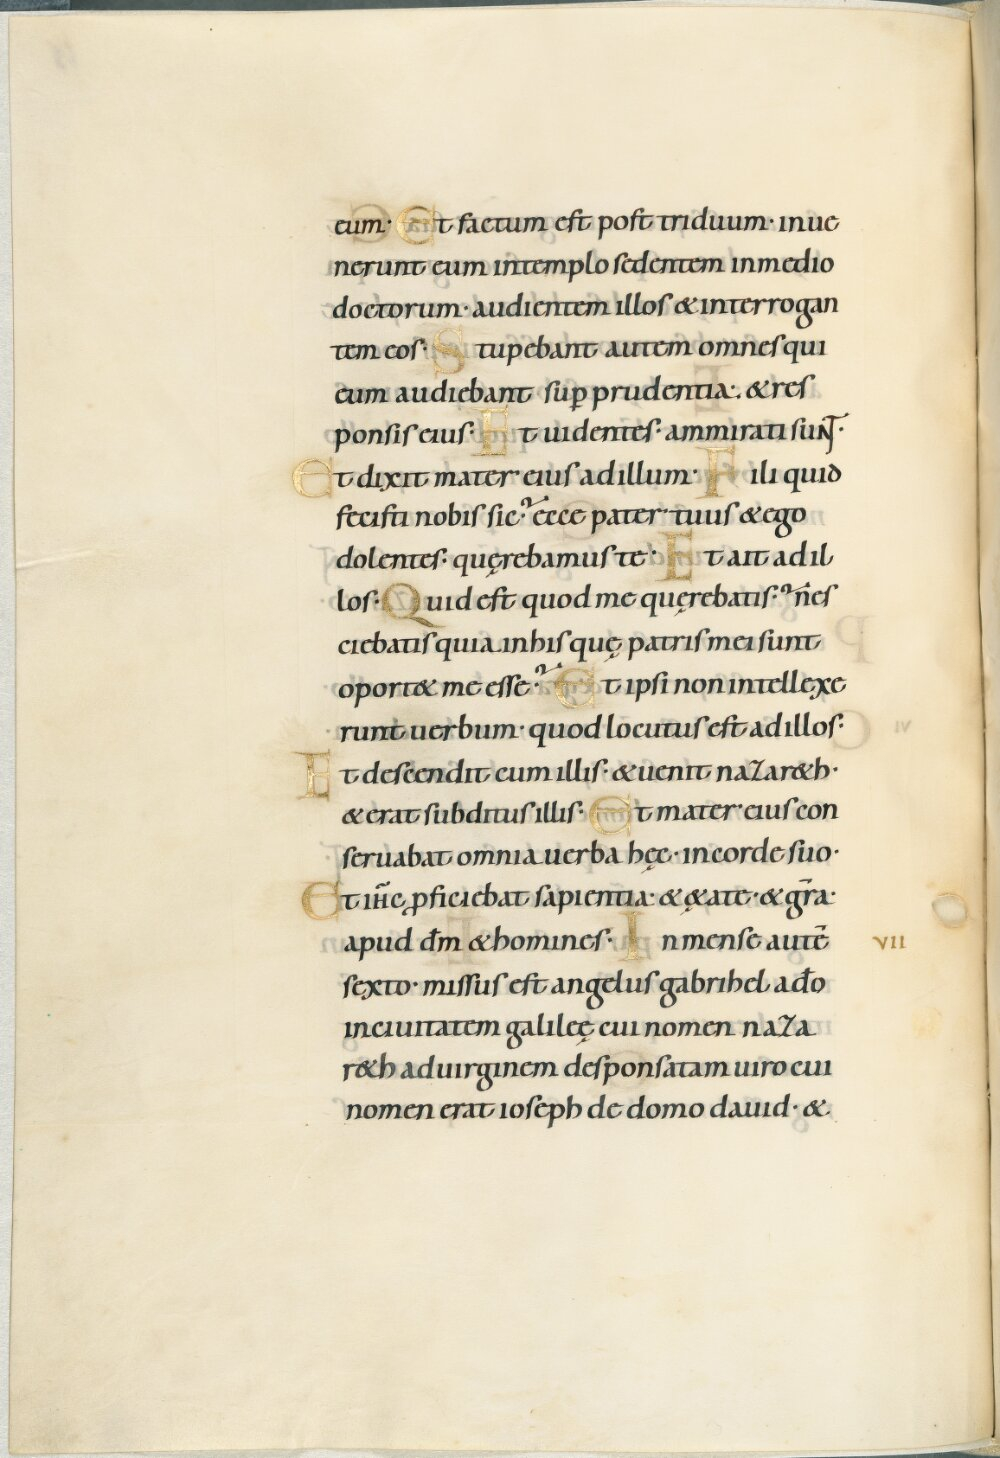 eum· Et factum est post triduum· inue
nerunt eum intemplo sedentem inmedio
doctorum· audientem illos & interrogan
tem eos· Stupebant autem omnes qui
eum audiebant sup̱ prudentia· & res
ponsis eius· Et uidentes· ammirati sunt·
Et dixit mater eius ad illum· Fili quid
fecisti nobis sic? ecce pater tuus & ego
dolentes· quęrebamus te· Et ait ad il
los· Quid est quod me quęrebatis? ñ es
ciebatis quia inhis quę patris mei sunt
oport& me esse? Et ipsi non intellexe
runt uerbum· quod locutus est ad illos·
Et descendit cum illis· & uenit nazar&h·
& erat subditus illis· Et mater eius con
seruabat omnia uerba hęc· incorde suo·
Et ih̅c ꝓficiebat sapientia· & ętate· & gr̅a·
apud dm̅ & homines· In mense aute̅ VII
sexto· missus est angelus gabrihel a do̅
inciuitatem galileę cui nomen naza
r&h ad uirginem desponsatam uiro cui
nomen erat ioseph de domo dauid· &